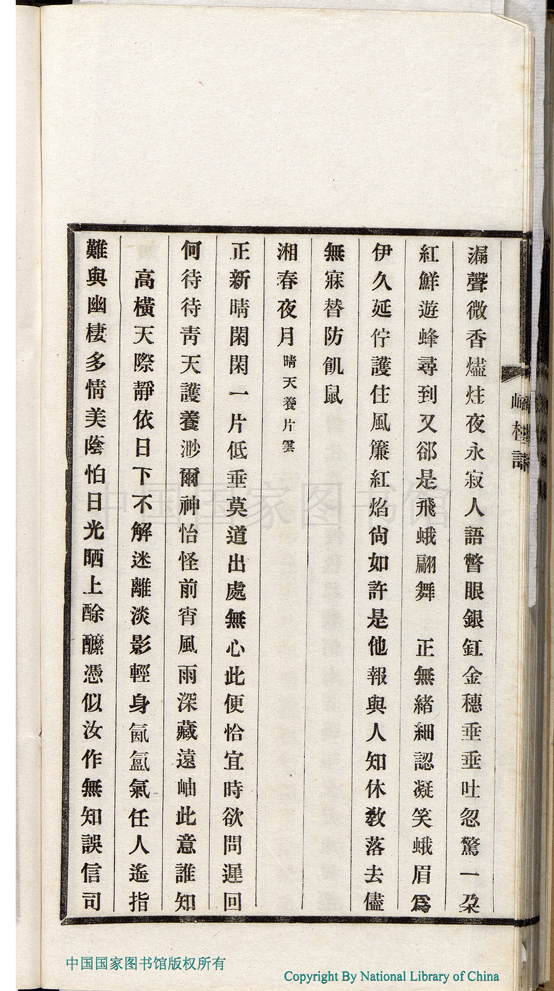 漏聲微香燼炷夜永寂人語瞥眼銀釭金穗垂垂吐忽驚一朶
紅鮮遊蜂尋到又郤是飛蛾翩舞　正無緒細認凝笑蛾眉爲
伊久延佇護住風簾紅焰尙如許是他報與人知休敎落去儘
無寐替防飢鼠
湘春夜月晴天養片雲
正新晴閑閑一片低垂莫道出處無心此便恰宜時欲問遲回
何待待靑天護養渺爾神怡怪前宵風雨深藏遠岫此意誰知
高橫天際靜依日下不解迷離淡影輕身氤氳氣任人遙指
難與幽棲多情美蔭怕日光晒上酴醾憑似汝作無知誤信司
中国国家图书馆
中国国家图书馆版权所有
Copyright By National Library of China